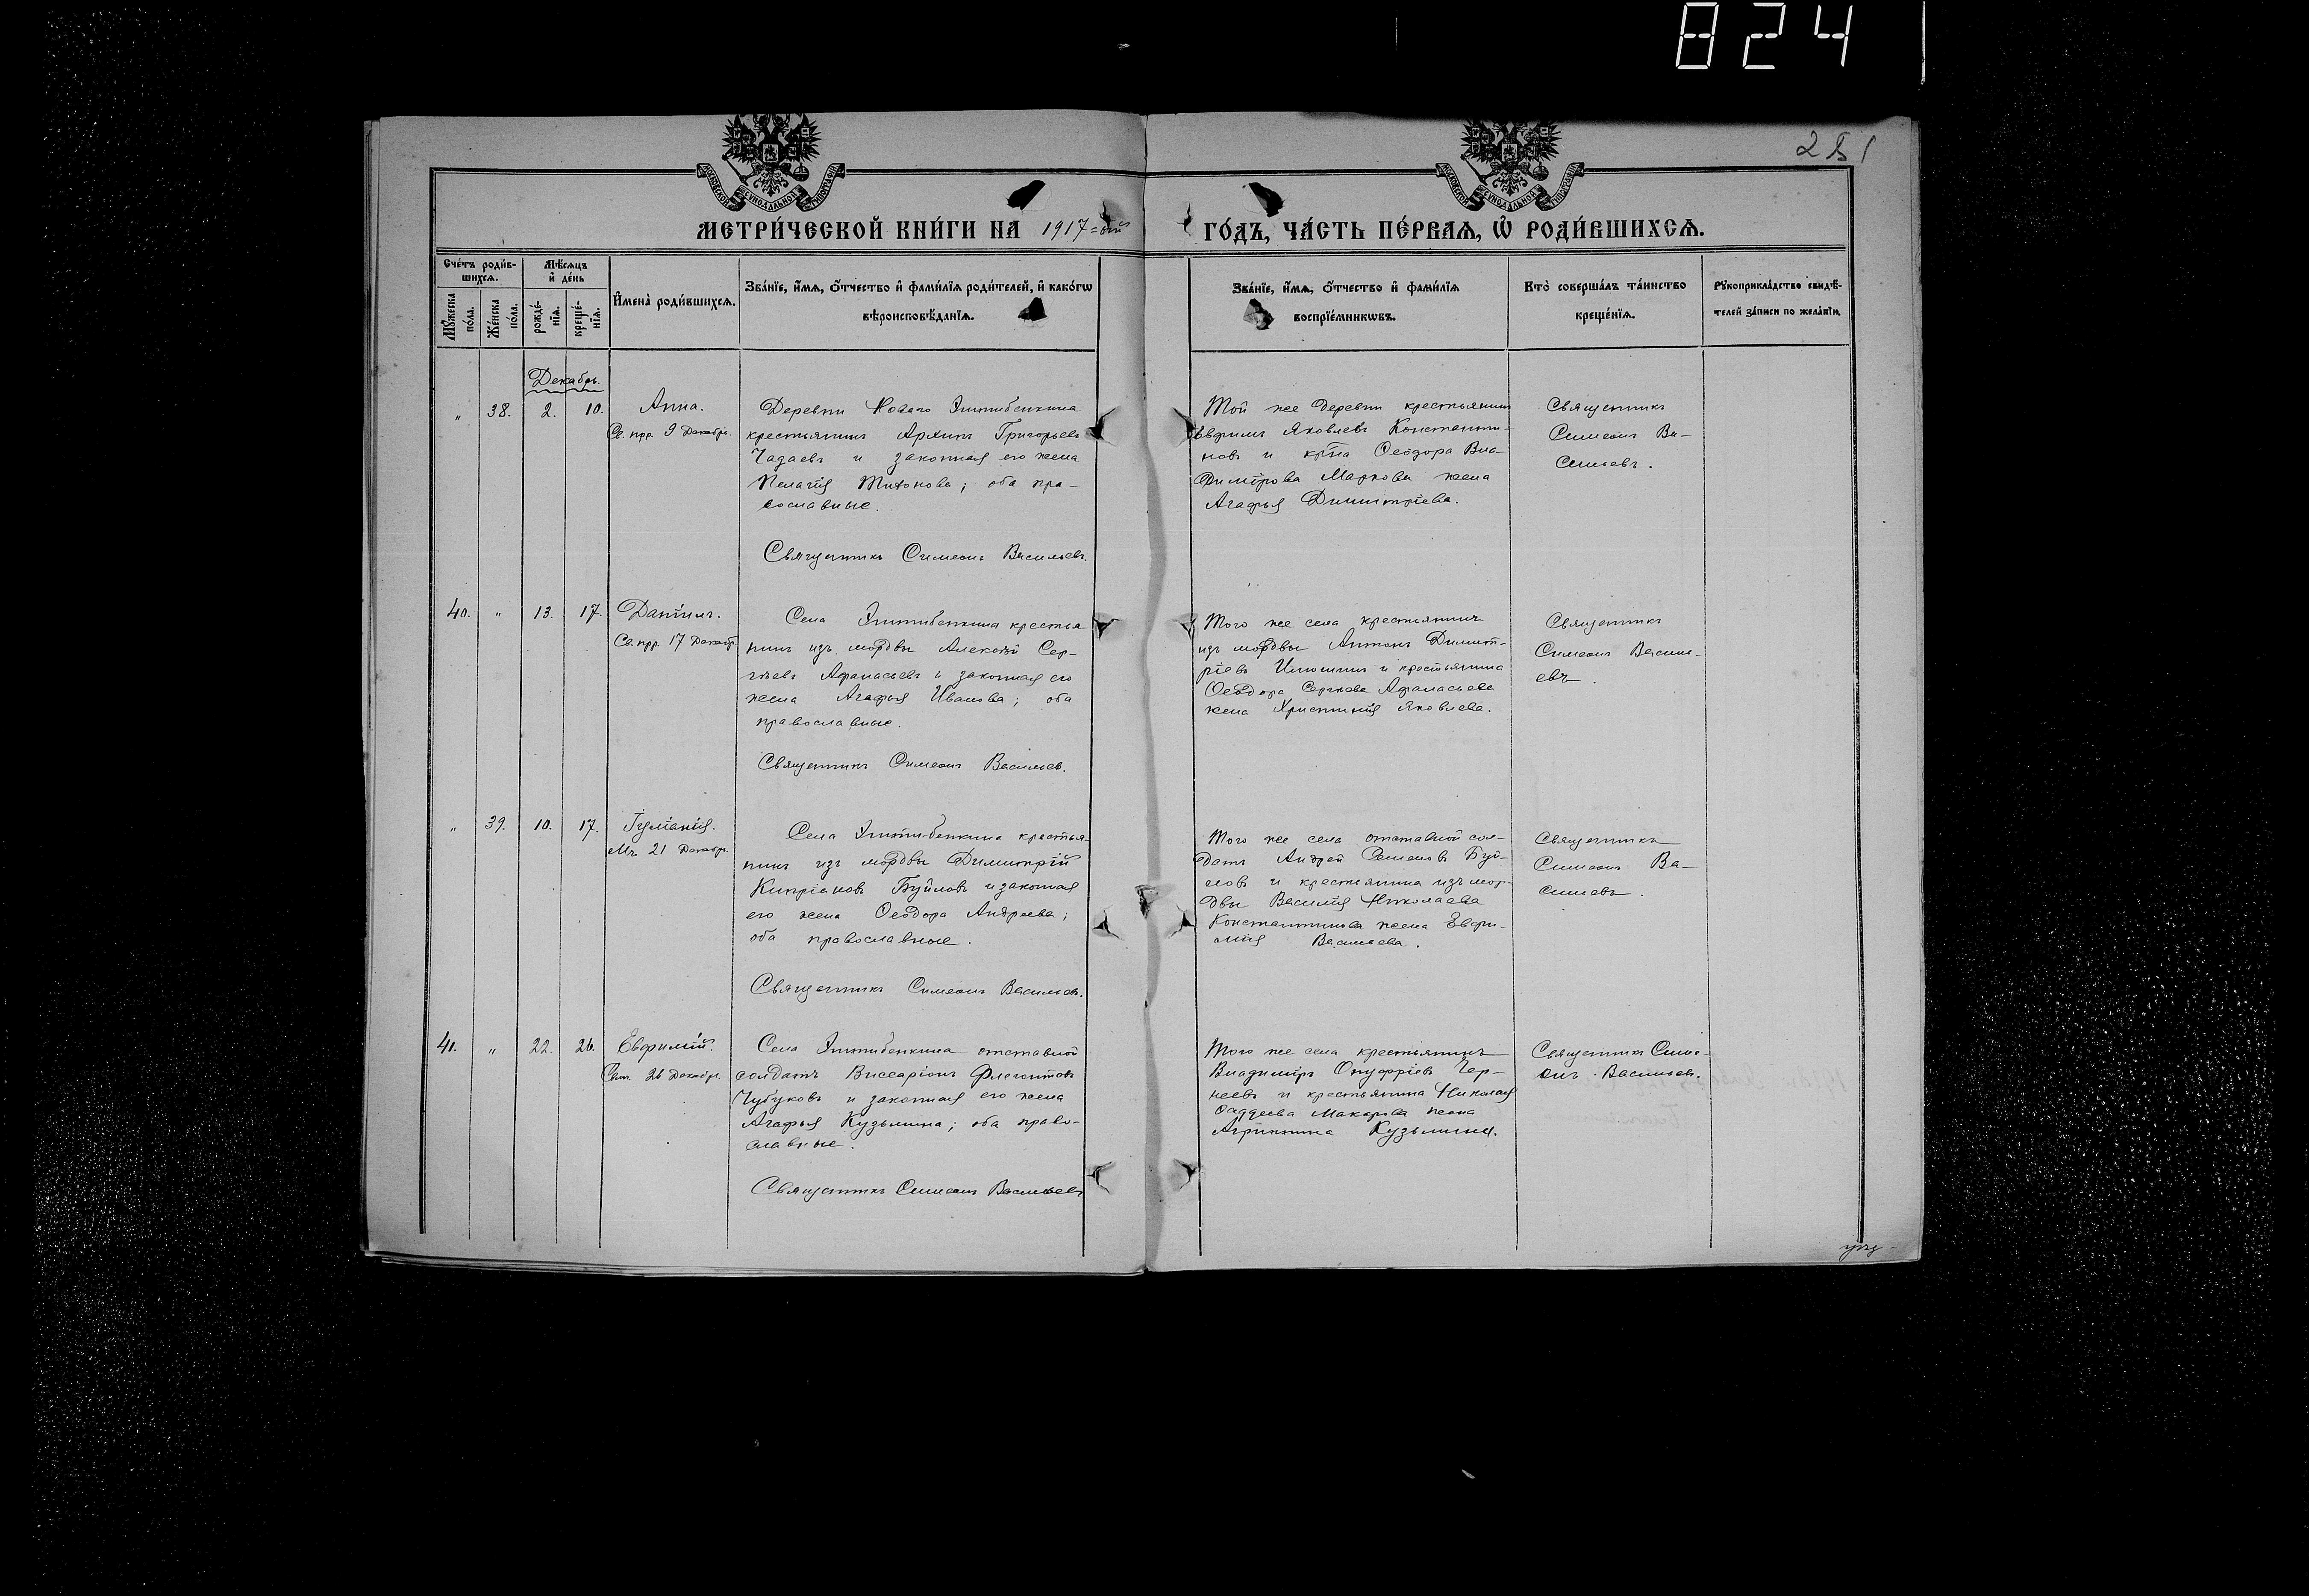 824
251
МОСКОВСКОЙ СѴНОДАЛЬНОЙ ТИПОГРАФІИ
МОСКОВСКОЙ СѴНОДАЛЬНОЙ ТИПОГРАФІИ
МЕТРИ́ЧЕСКОЙ КНИ́ГИ НА 1917=ый ГО́ДЪ, ЧА́СТЬ ПЕ́РВАЯ, Ѽ РОДИ́ВШИХСЯ.
Сче́тъ роди́в-
шихся.
Мꙋ́жеска по́ла.
Же́нска по́ла.
Мѣ́сяцъ
и҆ де́нь
рожде́-
нїя.
креще́-
нїя.
И҆мена̀ роди́вшихся.
Зва́нїе, и҆́мя, ѻ҆́тчество и҆ фами́лїя роди́телей, и҆ како́гѡ
вѣроисповѣ́данїя.
Зва́нїе, и҆́мя, ѻ҆́тчество и҆ фами́лїя
воспрїе́мникѡвъ.
Кто̀ соверша́лъ та́инство
креще́нїя.
Рꙋкоприкла́дство свидѣ́-
телей за́писи по жела́нїю.
Декабрь.
„ 38. 2. 10.
Анна.
Св. пр. 9 Декабря.
Деревни Новаго
крестьянинъ Архипъ Григорьевъ
Чадаевъ и законная его жена
Пелагія Тихонова; оба пра-
вославные.
Священникъ Симеонъ Васильевъ.
Той же деревни крестьянинъ
Евфимъ Яковлевъ Константи-
новъ и кр̅на Ѳеодора Вла-
димірова Маркова жена
Агафья Димитріева.
Священникъ
Симеонъ Ва-
сильевъ.
40. „ 13. 17.
Даніилъ.
Св. пр. 17 Декабр.
Села крестья
нинъ изъ мордвы Алексѣй Сер-
гѣевъ Афанасьевъ и законная его
жена Агафья Иванова; оба
православные.
Священникъ Симеонъ Васильев.
Того же села крестьянинъ
изъ мордвы Антонъ Димит-
ріевъ Илюшинъ и крестьянина
Ѳеодора Сергѣева Афанасьева
жена Христинія Яковлева.
Священникъ
Симеонъ Василь-
евъ.
„ 39. 10. 17.
Іуліанія.
Мч. 21 Декабр.
Села крестья
нинъ изъ мордвы Димитрій
Кипріановъ Буйловъ и законная
его жена Ѳеодора Андреева;
оба православные.
Священникъ Симеонъ Васильев.
Того же села отставной сол-
датъ Андрей Семеновъ Буй-
ловъ и крестьянина изъ мор-
двы Василія Николаева
Константинова жена Евфи-
мія Васильева.
Священникъ
Симеонъ Ва-
сильевъ.
41. „ 22. 26.
Евфимій.
26 Декабр.
Села отставной
солдатъ Виссаріонъ Флегонтовъ
Чубуковъ и законная его жена
Агафья Кузьмина; оба право-
славные.
Священникъ Симеонъ Васильевъ
Того же села крестьянинъ
Владиміръ Онуфріевъ Чер-
неевъ и крестьянина Николая
Ѳаддеева Макарова жена
Агриппина Кузьмина.
Священникъ Симе-
онъ Васильев.